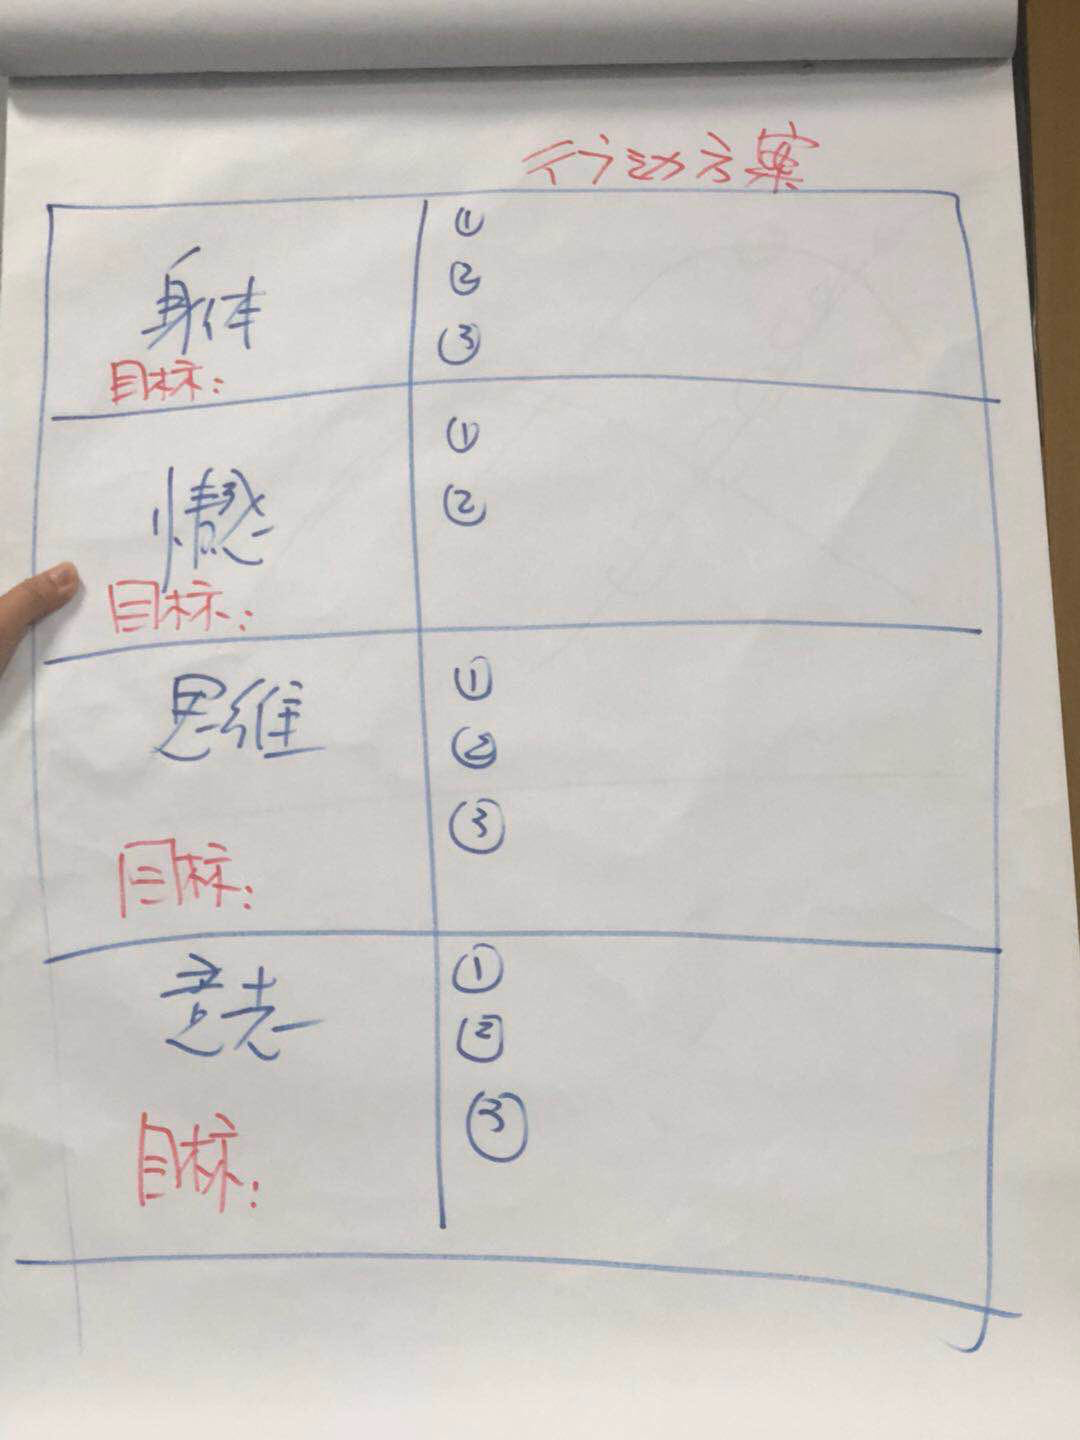 行动方案
身体
目标:
①
②
③
情感
目标:
①
②
思维
目标:
①
②
③
意志
目标:
①
②
③